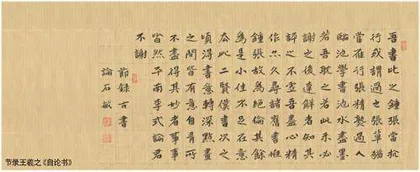 吾書比之鍾張當抗
行或謂過之張草猶
當雁行張精熟過人
臨池學書池水盡墨
若吾耽之若此未必
謝之後達解者知其
評之不虛吾盡心精
作亦久尋諸舊書惟
鍾張故為絕倫其餘
為是小佳不足在意
去此二賢僕書次之
須得書意轉深點畫
之間皆有意自有言所
不盡得其妙者事事
皆然平南李式論君
不謝
節錄古書
論石敏
节录王羲之《自论书》